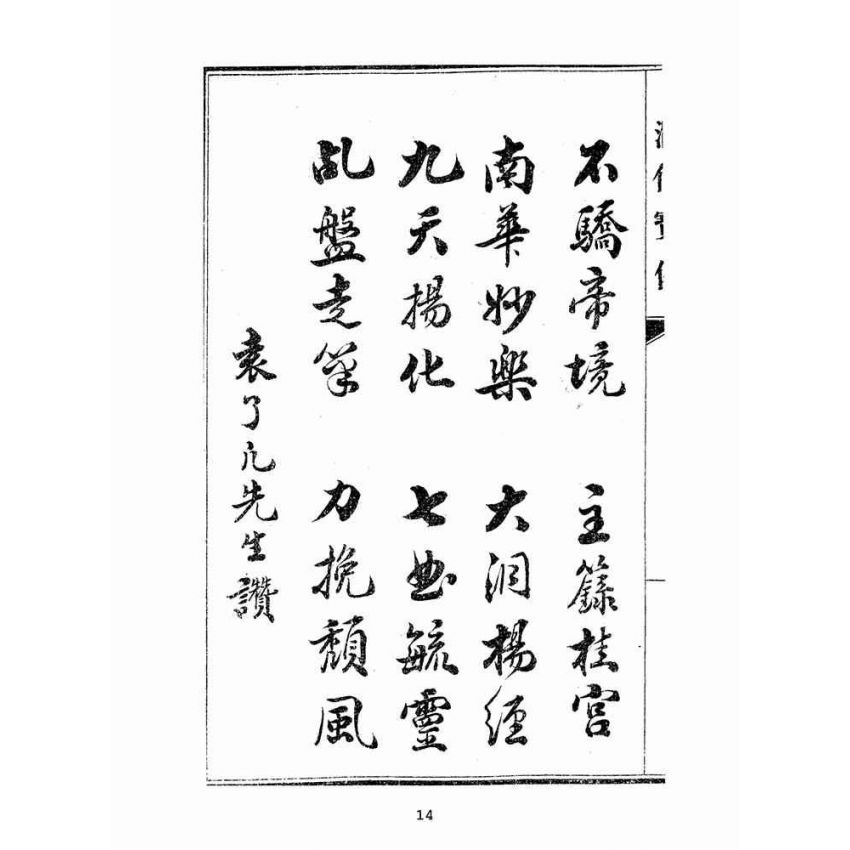 不驕帝境　主籙桂宮
南華妙樂　大洞楊經
九天揚化　七曲毓靈
乩盤走筆　力挽頹風
袁了凡先生讚
14